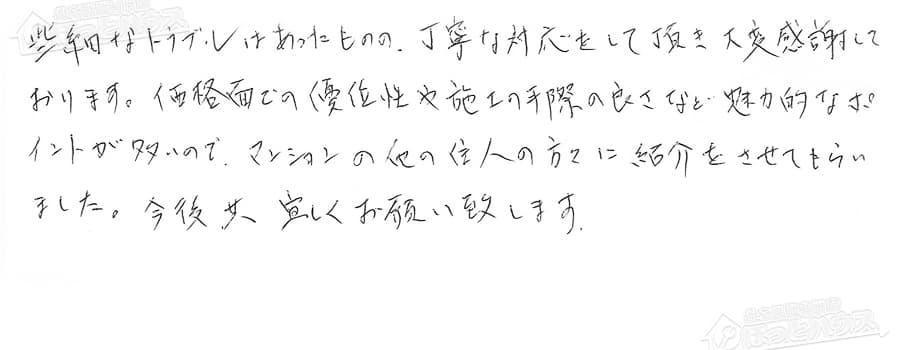 些細なトラブルはあったものの、丁寧な対応をして頂き大変感謝して
おります。価格面での優位性や施工の手際の良さなど魅力的なポ
イントが多いので、マンションの他の住人の方々に紹介をさせてもらい
ました。今後共、宜しくお願い致します。
住宅設備専門
ほっとハウス